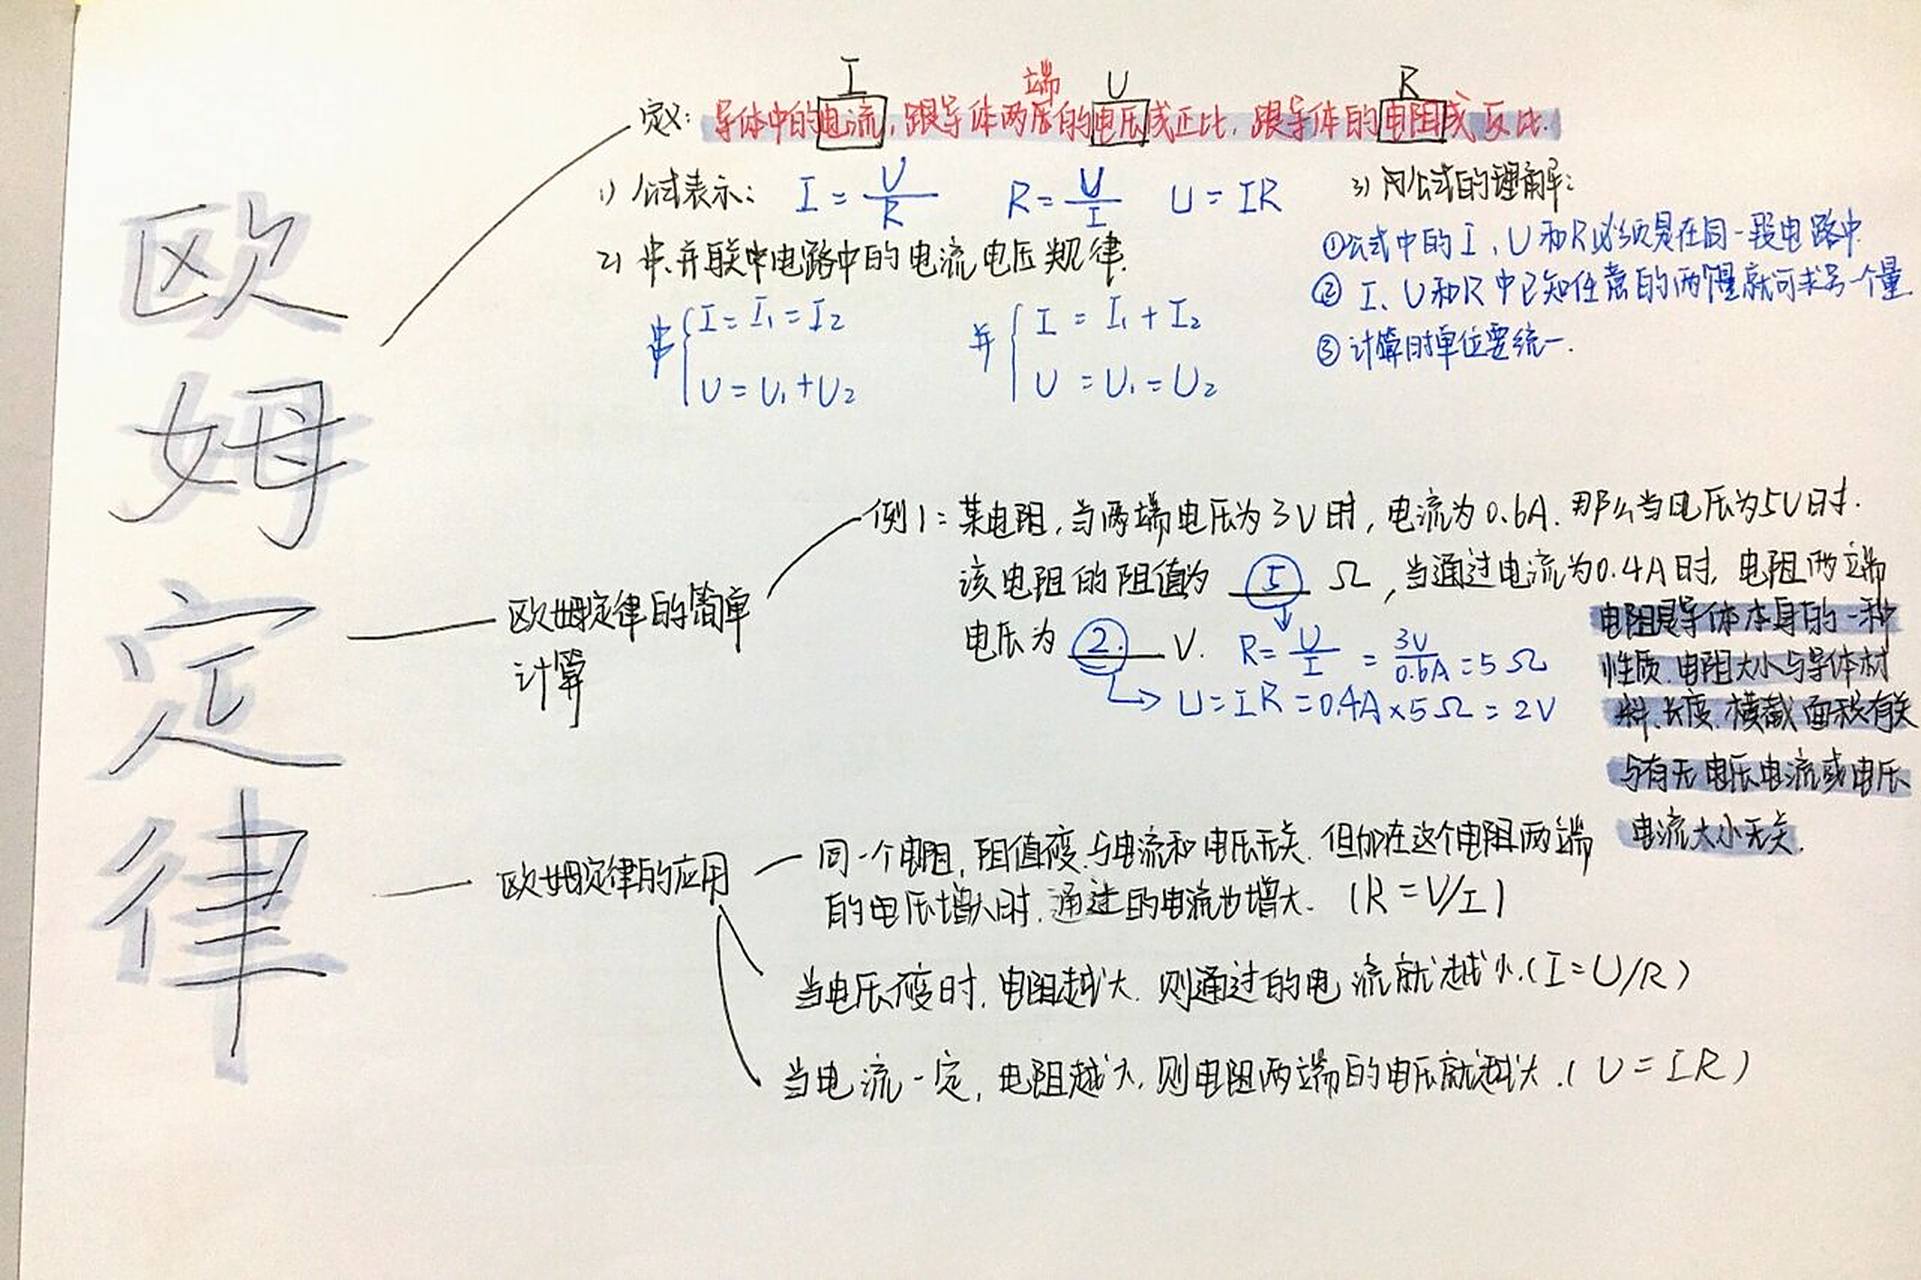 欧姆定律
I 端 U R
定义：导体中的电流，跟导体两层的电压成正比，跟导体的电阻成反比.
1) 公式表示： I = U/R R = U/I U = IR
2) 串、并联中电路中的电流电压规律.
串 { I = I₁ = I₂
U = U₁ + U₂
并 { I = I₁ + I₂
U = U₁ = U₂
3) 对公式的理解：
①公式中的I、U和R必须是在同一段电路中.
② I、U和R中已知任意的两个量就可求另一个量
③ 计算时单位要统一.
欧姆定律的简单
计算
例1：某电阻，当两端电压为3V时，电流为0.6A. 那么当电压为5V时.
该电阻的阻值为 5 Ω，当通过电流为0.4A时，电阻两端
电压为 2 V. R = U/I = 3V/0.6A = 5Ω
U = IR = 0.4A×5Ω = 2V
电阻是导体本身的一种
性质.电阻大小与导体材
料、长度、横截面积有关
与有无电压电流或电压
电流大小无关.
欧姆定律的应用
同一个电阻，阻值不变.与电流和电压无关.但加在这个电阻两端
的电压增大时.通过的电流也增大. (R=V/I)
当电压不变时，电阻越大.则通过的电流就越小.(I=U/R)
当电流一定，电阻越大，则电阻两端的电压就越大.(U=IR)